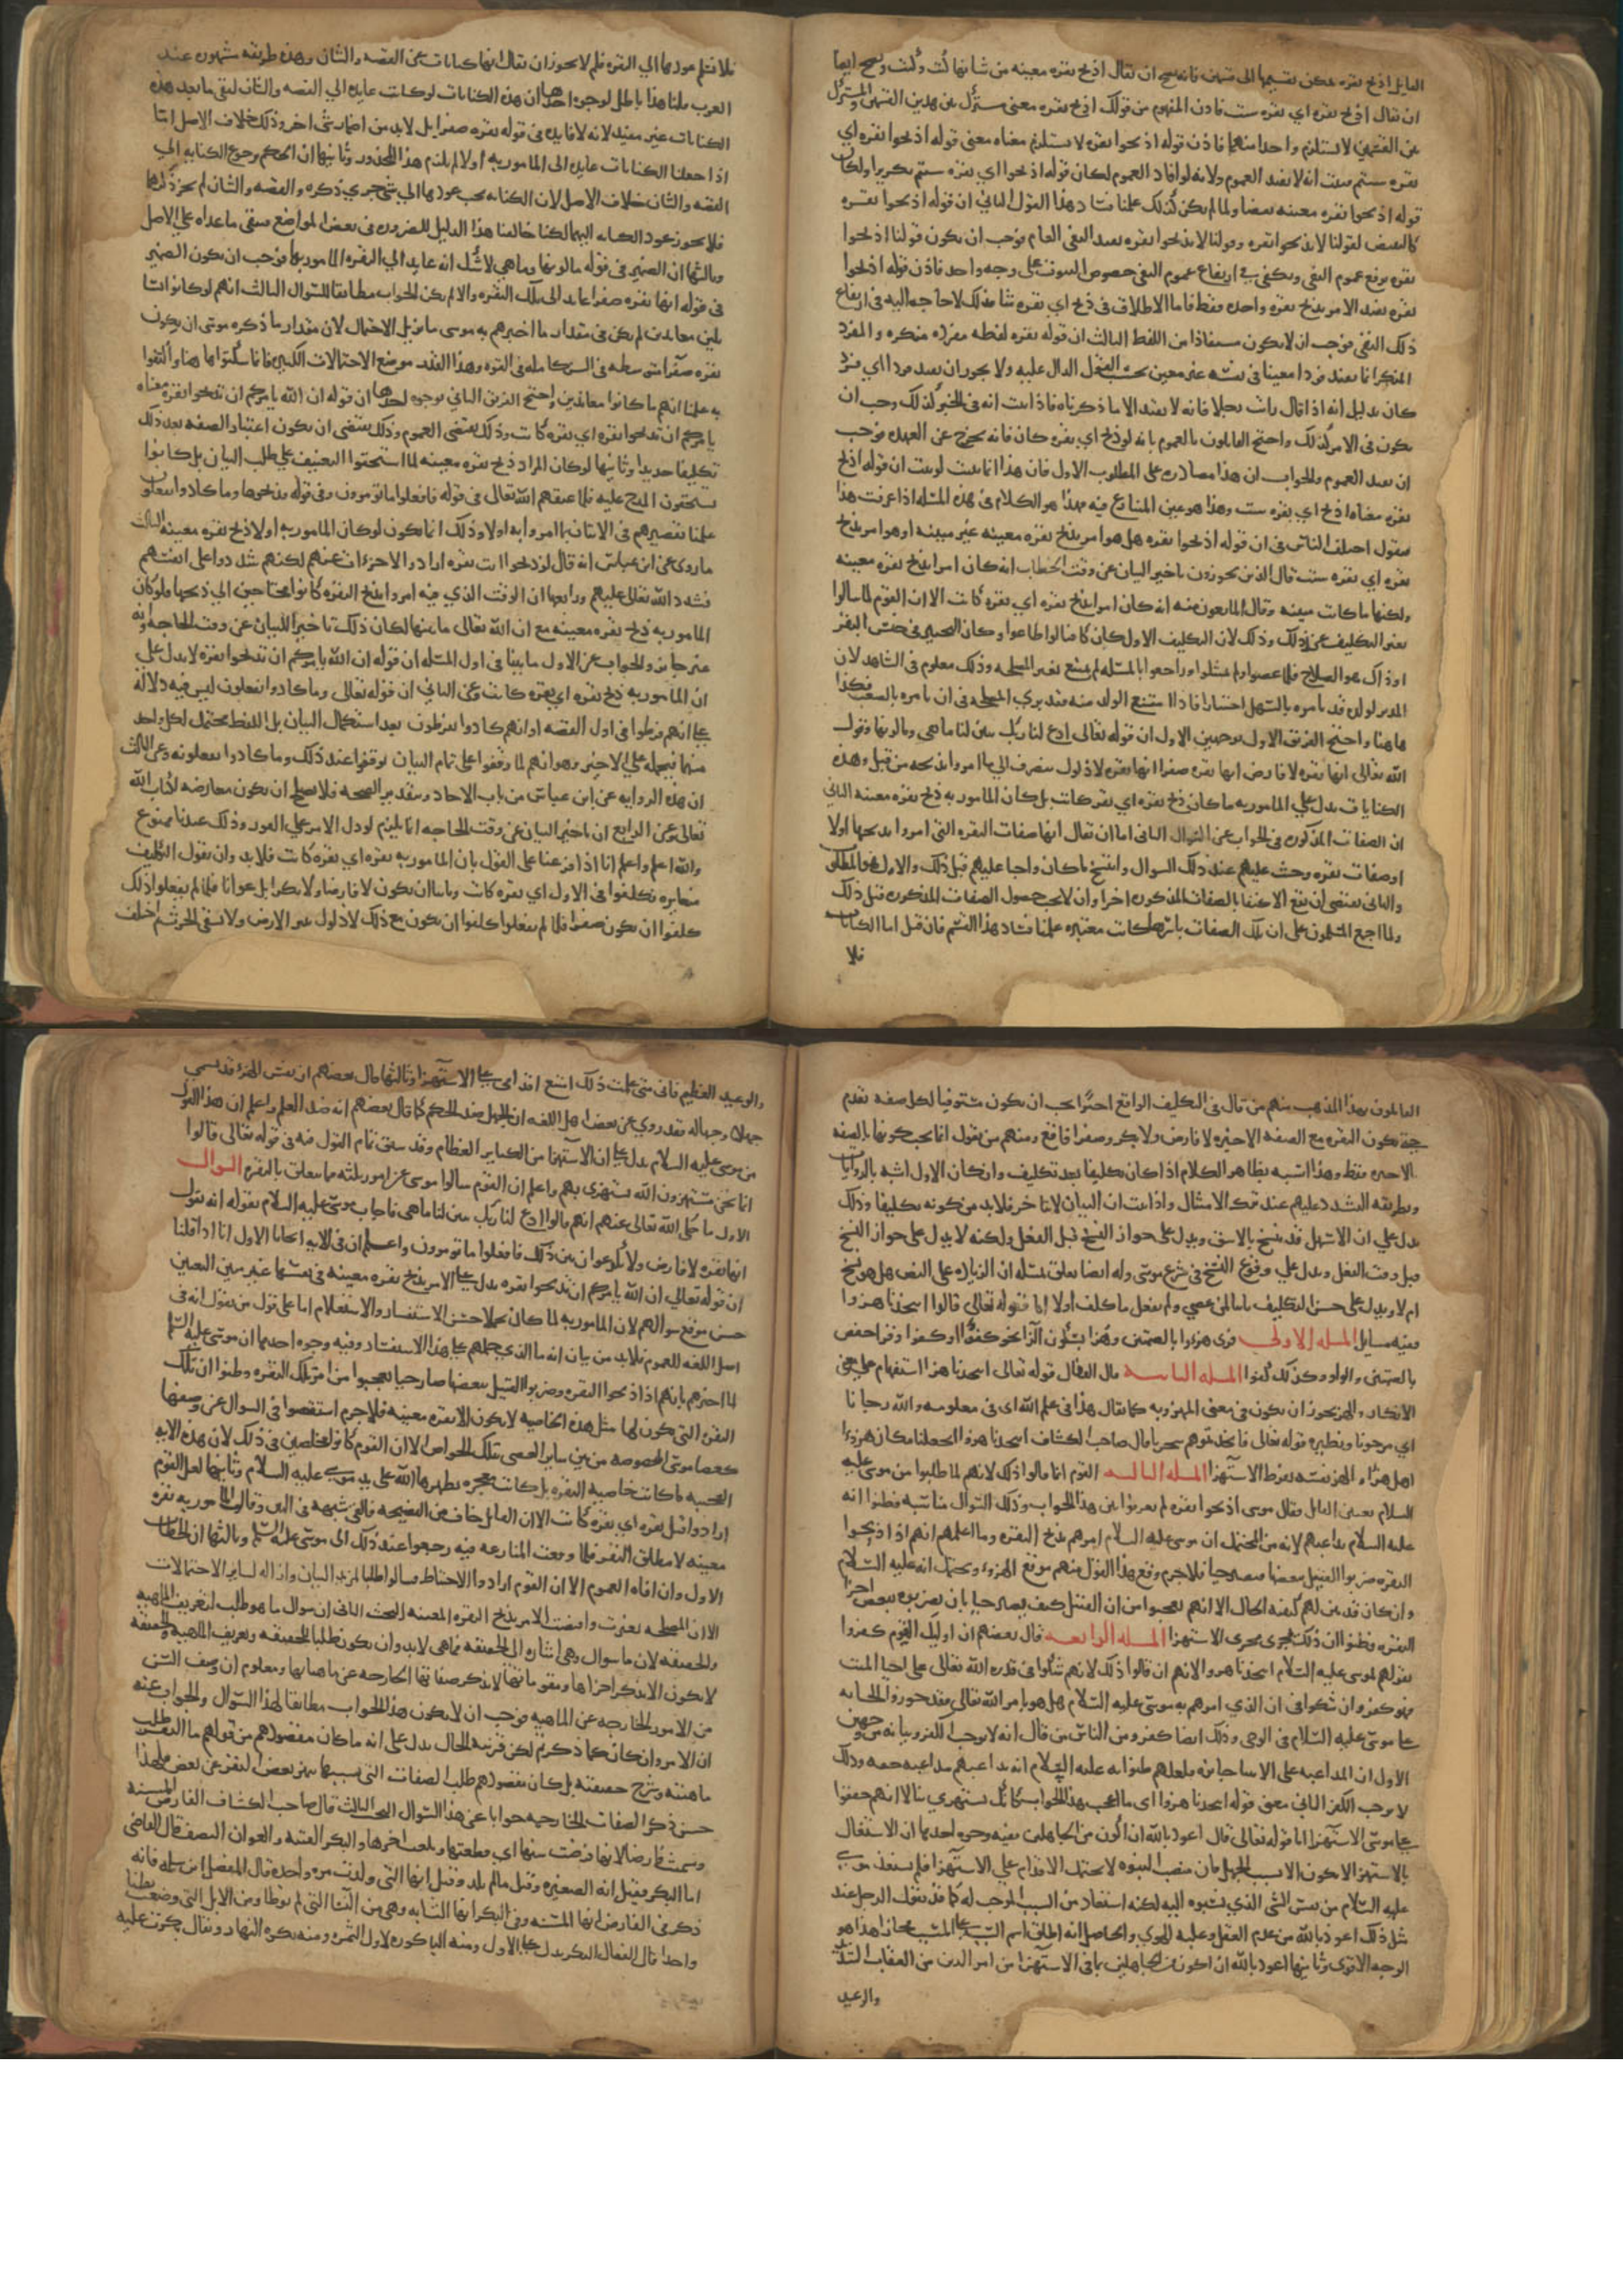 القايل اذبح بقرة يمكن تقسيمها الى قسمين فانه يصح ان يقال اذبح بقرة معينة من شانها كيت وكيت ويصح ايضا
ان يقال اذبح بقرة اي بقرة شيت فاذن المفهوم من قولك اذبح بقرة معنى مشترك بين هذين القسمين والمشترك
بين القسمين لا يستلزم واحدا منهما فاذن قوله اذبحوا بقرة لا يستلزم معناه معنى قوله اذبحوا بقرة اي
بقرة شيتم فثبت انه لا يفيد العموم ولانه لو افاد العموم لكان قوله اذبحوا اي بقرة شيتم تكريرا ولكان
قوله اذبحوا بقرة معينة نقضا ولما لم يكن كذلك علمنا فساد هذا القول الثاني ان قوله اذبحوا بقرة
كالنقيض لقولنا لا تذبحوا بقرة وقولنا لا تذبحوا بقرة يفيد النفي العام فوجب ان يكون قولنا اذبحوا
بقرة يرفع عموم النفي ويكفي في ارتفاع عموم النفي خصوص الثبوت على وجه واحد فاذن قوله اذبحوا
بقرة يفيد الامر بذبح بقرة واحدة فقط فاما الاطلاق في ذبح اي بقرة شا فذلك لا حاجة اليه في ارتفاع
ذلك النفي فوجب ان لا يكون مستفادا من اللفظ الثالث ان قوله بقرة لفظة مفردة منكرة والمفرد
المنكر انما يفيد فردا معينا في نفسه غير معين بحسب القول الدال عليه ولا يجوز ان يفيد فردا اي فرد
كان بدليل انه اذا قال رايت رجلا فانه لا يفيد الا ما ذكرناه فاذا ثبت انه في الخبر كذلك وجب ان
يكون في الامر كذلك واحتج القايلون بالعموم بانه لو ذبح اي بقرة كان فانه يخرج عن العهدة فوجب
ان يفيد العموم والجواب ان هذا مصادرة على المطلوب الاول فان هذا انما يثبت لو ثبت ان قوله اذبح
بقرة معناه اذبح اي بقرة شيت وهذا هو عين المتنازع فيه فهذا هو الكلام في هذه المسلة اذا عرفت هذا
فنقول اختلف الناس في ان قوله اذبحوا بقرة هل هو امر بذبح بقرة معينة غير مبينة او هو امر بذبح
بقرة اي بقرة شيت قال الذين يجوزون تاخير البيان عن وقت الخطاب انه كان امرا بذبح بقرة معينة
ولكنها ما كانت مبينة وقال المانعون منه انه كان امرا بذبح بقرة اي بقرة كانت الا ان القوم لما سالوا
تغير التكليف عن ذلك وذلك لان التكليف الاول كان كافيا لو اطاعوا وكان التخيير في جنس البقر
اذ ذاك هو الصلاح فلما عصوا ولم يمتثلوا وراجعوا بالمسلة لم يمتنع تغير المصلحة وذلك معلوم في الشاهد لان
المدبر لولده قد يامره بالسهل اختيارا فاذا امتنع الولد منه فقد يرى المصلحة في ان يامره بالصعب فكذا
هاهنا واحتج الفريق الاول بوجهين الاول ان قوله تعالى ادع لنا ربك يبين لنا ما هي وما لونها وقول
الله تعالى انها بقرة لا فارض انها بقرة صفرا انها بقرة لا ذلول منصرف الى ما امروا بذبحه من قبل وهذه
الكنايات تدل على المامور به ما كان ذبح بقرة اي بقر كانت بل كان المامور به ذبح بقرة معينة الثاني
ان الصفات المذكورة في الجواب عن السوال الثاني اما ان يقال انها صفات البقرة التي امروا بذبحها اولا
او صفات بقرة وجبت عليهم عند ذلك السوال وانتسخ ما كان واجبا عليهم قبل ذلك والاول هو المطلوب
والثاني يقتضي ان يقع الاكتفا بالصفات المذكورة اخرا وان لا يجب حصول الصفات المذكورة قبل ذلك
ولما اجمع المسلمون على ان تلك الصفات باسرها كانت معتبرة علمنا فساد هذا القسم فان قيل اما الكنايات
فلا
فلا نسلم عودها الى البقرة فلم لا يجوز ان يقال انها كنايات عن القصة والشان وهذه طريقة مشهورة عند
العرب قلنا هذا باطل لوجوه احدها ان هذه الكنايات لو كانت عايدة الى القصة والشان لبقي ما بعد هذه
الكنايات غير مفيد لانه لا فايدة في قوله بقرة صفرا بل لا بد من اضمار شي اخر وذلك خلاف الاصل اما
اذا جعلنا الكنايات عايدة الى المامور به اولا لم يلزم هذا المحذور وثانيها ان الحكم برجوع الكناية الى
القصة والشان خلاف الاصل لان الكناية يجب عودها الى شي جرى ذكره والقصة والشان لم يجر ذكرهما
فلا يجوز عود الكناية اليهما لكنا خالفنا هذا الدليل للضرورة في بعض المواضع فبقي ما عداه على الاصل
وثالثها ان الضمير في قوله ما لونها وما هي لا شك انه عايد الى البقرة المامور بها فوجب ان يكون الضمير
في قوله انها بقرة صفرا عايد الى تلك البقرة والا لم يكن الجواب مطابقا للسوال الثالث انهم لو كانوا سا
يلين معاندين لم يكن في مقدار ما اخبرهم به موسى ما يزيل الاحتمال لان مقدار ما ذكره موسى ان يكون
بقرة صفرا متوسطة في السن كاملة في القوة وهذا القدر موضع الاحتمالات الكثيرة فلما سكتوا هاهنا واكتفوا
به علمنا انهم ما كانوا معاندين واحتج الفريق الثاني بوجوه احدها ان قوله ان الله يامركم ان تذبحوا بقرة معناه
يامركم ان تذبحوا بقرة اي بقرة كانت وذلك يقتضي العموم وذلك يقتضي ان يكون اعتبار الصفة بعد ذلك
تكليفا جديدا وثانيها لو كان المراد ذبح بقرة معينة لما استحقوا التعنيف على طلب البيان بل كانوا
يستحقون المدح عليه فلما عنفهم الله تعالى في قوله فافعلوا ما تومرون وفي قوله فذبحوها وما كادوا يفعلون
علمنا تقصيرهم في الاتيان بما امروا به اولا وذلك انما يكون لو كان المامور به اولا ذبح بقرة معينة الثالث
ما روي عن ابن عباس انه قال لو ذبحوا اية بقرة ارادوا لاجزات عنهم لكنهم شددوا على انفسهم
فشدد الله تعالى عليهم ورابعها ان الوقت الذي فيه امروا بذبح البقرة كانوا محتاجين الى ذبحها فلو كان
المامور به ذبح بقرة معينة مع ان الله تعالى ما بينها لكان ذلك تاخيرا للبيان عن وقت الحاجة وانه
غير جايز والجواب عن الاول ما بينا في اول المسلة ان قوله ان الله يامركم ان تذبحوا بقرة لا يدل على
ان المامور به ذبح بقرة اي بقرة كانت وعن الثاني ان قوله تعالى وما كادوا يفعلون ليس فيه دلالة
على انهم فرطوا في اول القصة او انهم كادوا يفرطون بعد استكمال البيان بل اللفظ محتمل لكل واحد
منهما فيحمله على الاخير وهو انهم لما وقفوا على تمام البيان توقفوا عند ذلك وما كادوا يفعلونه وعن الثالث
ان هذه الرواية عن ابن عباس من باب الاحاد وبتقدير الصحة فلا يصلح ان يكون معارضة لكتاب الله
تعالى وعن الرابع ان تاخير البيان عن وقت الحاجة انما يلزم لو دل الامر على الفور وذلك عندنا ممنوع
والله اعلم واعلم انا اذا فرعنا على القول بان المامور به بقرة اي بقرة كانت فلا بد وان نقول التكاليف
متغايرة فكلفوا في الاول اي بقرة كانت وثانيا ان يكون لا فارضا ولا بكرا بل عوانا فلما لم يفعلوا ذلك
كلفوا ان يكون صفرا فلما لم يفعلوا كلفوا ان يكون مع ذلك لا ذلول تثير الارض ولا تسقي الحرث ثم اختلف
القايلون بهذا المذهب منهم من قال في التكليف الواقع اخرا يجب ان يكون مستوفيا لكل صفة تقدم
حتى تكون البقرة مع الصفة الاخيرة لا فارض ولا بكر وصفرا فاقع ومنهم من يقول انما يجب كونها بالصفة
الاخيرة فقط وهذا اشبه بظاهر الكلام اذا كان تكليفا بعد تكليف وان كان الاول اشبه بالروايات
وبطريقة التشدد عليهم عند ترك الامتثال واذا ثبت ان البيان لا يتاخر فلا بد من كونه تكليفا وذلك
يدل على ان الاسهل قد ينسخ بالاشق ويدل على جواز النسخ قبل الفعل ولكنه لا يدل على جواز النسخ
قبل وقت الفعل ويدل على وقوع النسخ في شرع موسى وله ايضا تعلق بمسلة ان الزيادة على النص هل هو نسخ
ام لا ويدل على حسن التكليف ثانيا لمن عصى ولم يفعل ما كلف اولا اما قوله تعالى قالوا اتتخذنا هزوا
ففيه مسايل المسلة الاولى قرى هزوا بالضمتين وهزا بسكون الزا نحو كفوا او كفوا وقرا حفص
بالضمتين والواو وكذلك كفوا المسلة الثانية قال القفال قوله تعالى اتتخذنا هزوا استفهام على معنى
الانكار والهزو يجوز ان يكون في معنى المهزو به كما يقال هذا في علم الله اي في معلومه والله رجانا
اي مرجونا ونظيره قوله تعالى فاتخذتموهم سخريا قال صاحب الكشاف اتتخذنا هزوا اتجعلنا مكان هزو او
اهل هزو او الهزو نفسه لفرط الاستهزا المسلة الثالثة القوم انما قالوا ذلك لانهم لما طلبوا من موسى عليه
السلام تعيين القاتل فقال موسى اذبحوا بقرة لم يعرفوا بين هذا الجواب وذلك السوال مناسبة فظنوا انه
عليه السلام يداعبهم لانه من المحتمل ان موسى عليه السلام امرهم بذبح البقرة وما اعلمهم انهم اذا ذبحوا
البقرة ضربوا القتيل ببعضها فيصير حيا فلا جرم وقع هذا القول منهم موقع الهزو ويحتمل انه عليه السلام
وان كان قد بين لهم كيفية الحال الا انهم تعجبوا من ان القتيل كيف يصير حيا بان يضربوه ببعض اجزا
البقرة فظنوا ان ذلك يجري مجرى الاستهزا المسلة الرابعة قال بعضهم ان اوليك القوم كفروا
بقولهم لموسى عليه السلام اتتخذنا هزوا لانهم ان قالوا ذلك لانهم شكوا في قدرة الله تعالى على احيا الميت
فهو كفر وان شكوا في ان الذي امرهم به موسى عليه السلام هل هو بامر الله تعالى فقد جوزوا الخيانة
على موسى عليه السلام في الوحي وذلك ايضا كفر ومن الناس من قال انه لا يوجب الكفر وبيانه من وجهين
الاول ان المداعبة على الانبيا جايزة فلعلهم ظنوا به عليه السلام انه يداعبهم مداعبة حقة وذلك
لا يوجب الكفر الثاني معنى قوله اتتخذنا هزوا اي ما اعجب هذا الجواب كانك تستهزي بنا لا انهم حققوا
على موسى الاستهزا اما قوله تعالى قال اعوذ بالله ان اكون من الجاهلين ففيه وجوه احدها ان الاشتغال
بالاستهزا لا يكون الا بسبب الجهل فان منصب النبوة لا يحتمل الاقدام على الاستهزا فلم يستعذ موسى
عليه السلام من نفس الشي الذي نسبوه اليه لكنه استعاذ من السبب الموجب له كما قد يقول الرجل عند
مثل ذلك اعوذ بالله من عدم العقل وغلبة الهوى والحاصل انه اطلق اسم السبب على المسبب مجازا هذا هو
الوجه الاقوى وثانيها اعوذ بالله ان اكون من الجاهلين بما في الاستهزا من امر الدين من العقاب الشديد
والوعيد
والوعيد العظيم فاني متى علمت ذلك امتنع اقدامي على الاستهزا وثالثها قال بعضهم ان نفس الهزو قد يسمى
جهلا وجهالة فقد روي عن بعض اهل اللغة ان الجهل ضد الحلم كما قال بعضهم انه ضد العلم واعلم ان هذا القول
من موسى عليه السلام يدل على ان الاستهزا من الكباير العظام وقد سبق تمام القول فيه في قوله تعالى قالوا
انما نحن مستهزون الله يستهزي بهم واعلم ان القوم سالوا موسى عن امور ثلثة مما يتعلق بالبقرة السوال
الاول ما حكى الله تعالى عنهم انهم قالوا ادع لنا ربك يبين لنا ما هي فاجاب موسى عليه السلام بقوله انه يقول
انها بقرة لا فارض ولا بكر عوان بين ذلك فافعلوا ما تومرون واعلم ان في الاية ابحاثا الاول انا اذا قلنا
ان قوله تعالى ان الله يامركم ان تذبحوا بقرة يدل على الامر بذبح بقرة معينة في نفسها غير مبين التعيين
حسن موقع سوالهم لان المامور به لما كان مجملا حسن الاستفسار والاستعلام اما على قول من يقول انه في
اصل اللغة للعموم فلا بد من بيان انه ما الذي حملهم على هذا الاستفسار وفيه وجوه احدها ان موسى عليه السلام
لما اخبرهم بانهم اذا ذبحوا البقرة وضربوا القتيل ببعضها صار حيا تعجبوا من امر تلك البقرة وظنوا ان تلك
البقرة التي يكون لها مثل هذه الخاصية لا يكون الا بقرة معينة فلا جرم استقصوا في السوال عن وصفها
كعصا موسى المخصوصة من بين ساير العصي بتلك الخواص الا ان القوم كانوا مخطين في ذلك لان هذه الاية
العجيبة ما كانت خاصية البقرة بل كانت معجزة يظهرها الله على يد موسى عليه السلام وثانيها لعل القوم
ارادوا قتل بقرة اي بقرة كانت الا ان القاتل خاف من الفضيحة فالقى شبهة في البين وقال المامور به بقرة
معينة لا مطلق البقر فلما وقعت المنازعة فيه رجعوا عند ذلك الى موسى عليه السلام وثالثها ان الخطاب
الاول وان افاد العموم الا ان القوم ارادوا الاحتياط فسالوا طلبا لمزيد البيان وازالة لساير الاحتمالات
الا ان المصلحة تغيرت واقتضت الامر بذبح البقرة المعينة البحث الثاني ان سوال ما هو طلب لتعريف الماهية
والحقيقة لان ما سوال وهي اشارة الى الحقيقة فما هي لا بد وان يكون طلبا للحقيقة وتعريف الماهية والحقيقة
لا يكون الا بذكر اجزايها ومقوماتها لا بذكر صفاتها الخارجة عن ماهياتها ومعلوم ان وصف السن
من الامور الخارجة عن الماهية فوجب ان لا يكون هذا الجواب مطابقا لهذا السوال والجواب عنه
ان الامر وان كان كما ذكرتم لكن قرينة الحال يدل على انه ما كان مقصودهم من قولهم ما البقرة طلب
ماهيته وشرح حقيقته بل كان مقصودهم طلب الصفات التي بسببها يتميز بعض البقر عن بعض فلهذا
حسن ذكر الصفات الخارجية جوابا عن هذا السوال البحث الثالث قال صاحب الكشاف الفارض المسنة
وسميت فارضا لانها فرضت سنها اي قطعتها وبلغت اخرها والبكر الفتية والعوان النصف قال القاضي
اما البكر فقيل انه الصغيرة وقيل ما لم يلد وقيل انها التي ولدت مرة واحدة قال المفضل ابن سلمة فانه
ذكر في الفارض انها المسنة وفي البكر انها الشابة وهي من النسا التي لم توطا ومن الابل التي وضعت بطنا
واحدا قال القفال البكر يدل على الاول ومنه الباكورة لاول الثمر ومنه بكرة النهار ويقال بكرت عليه